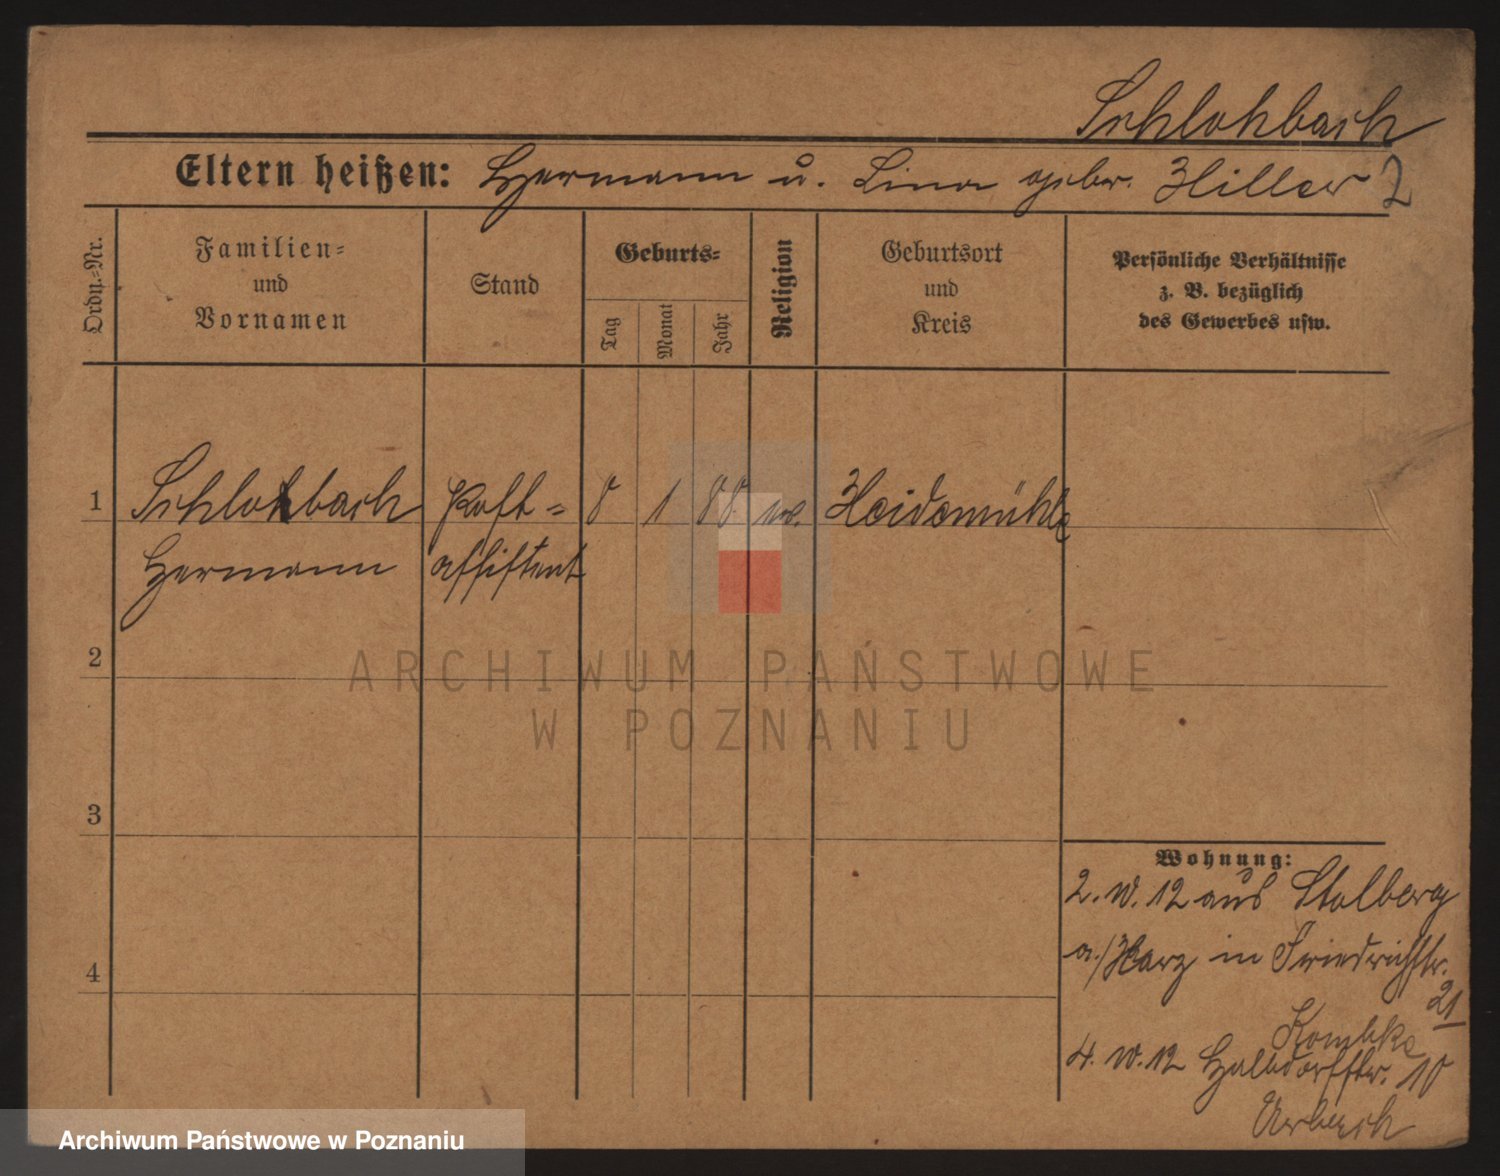 Schlohbach
Eltern heißen: Hermann u. Lina gebr. Hiller 2
Ordn.-Nr.
Familien-
und
Vornamen
Stand
Geburts-
Tag
Monat
Jahr
Religion
Geburtsort
und
Kreis
Persönliche Verhältnisse
z. B. bezüglich
des Gewerbes usw.
1 Schlohbach Post= 8 1 88. ev. Heidemühle
Hermann assistent
2
ARCHIWUM PAŃSTWOWE
W POZNANIU
3
Wohnung:
2. IV. 12 aus Stolberg
a./Harz in Friedrichstr.
21
4
4. IV. 12 Halbdorfstr. 10
Archiwum Państwowe w Poznaniu